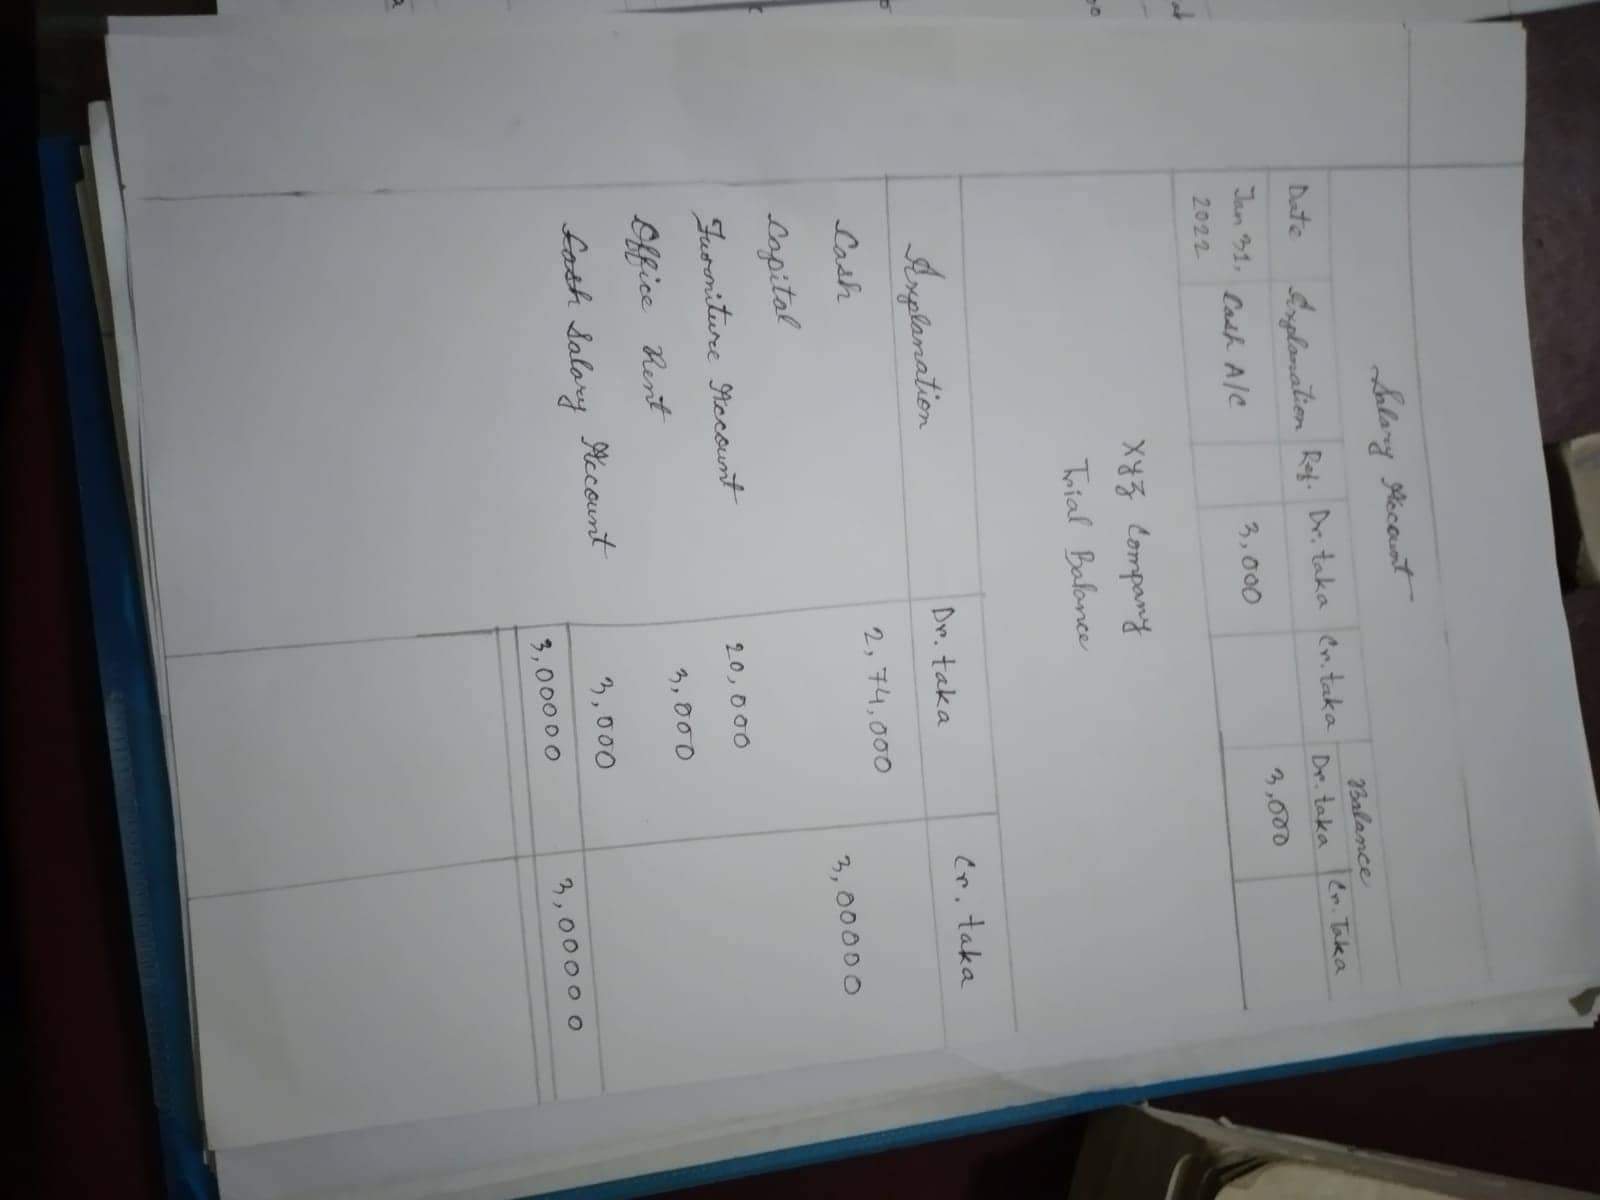 Salary Account
Date Explanation Ref. Dr. taka Cr. taka Balance
Dr. taka Cr. Taka
Jan 31, 2022 Cash A/C 3,000 3,000
XYZ Company
Trial Balance
Explanation Dr. taka Cr. taka
Cash 2,74,000
Capital 3,00000
Furniture Account 20,000
Office Rent 3,000
Cash Salary Account 3,000
3,00000 3,00000